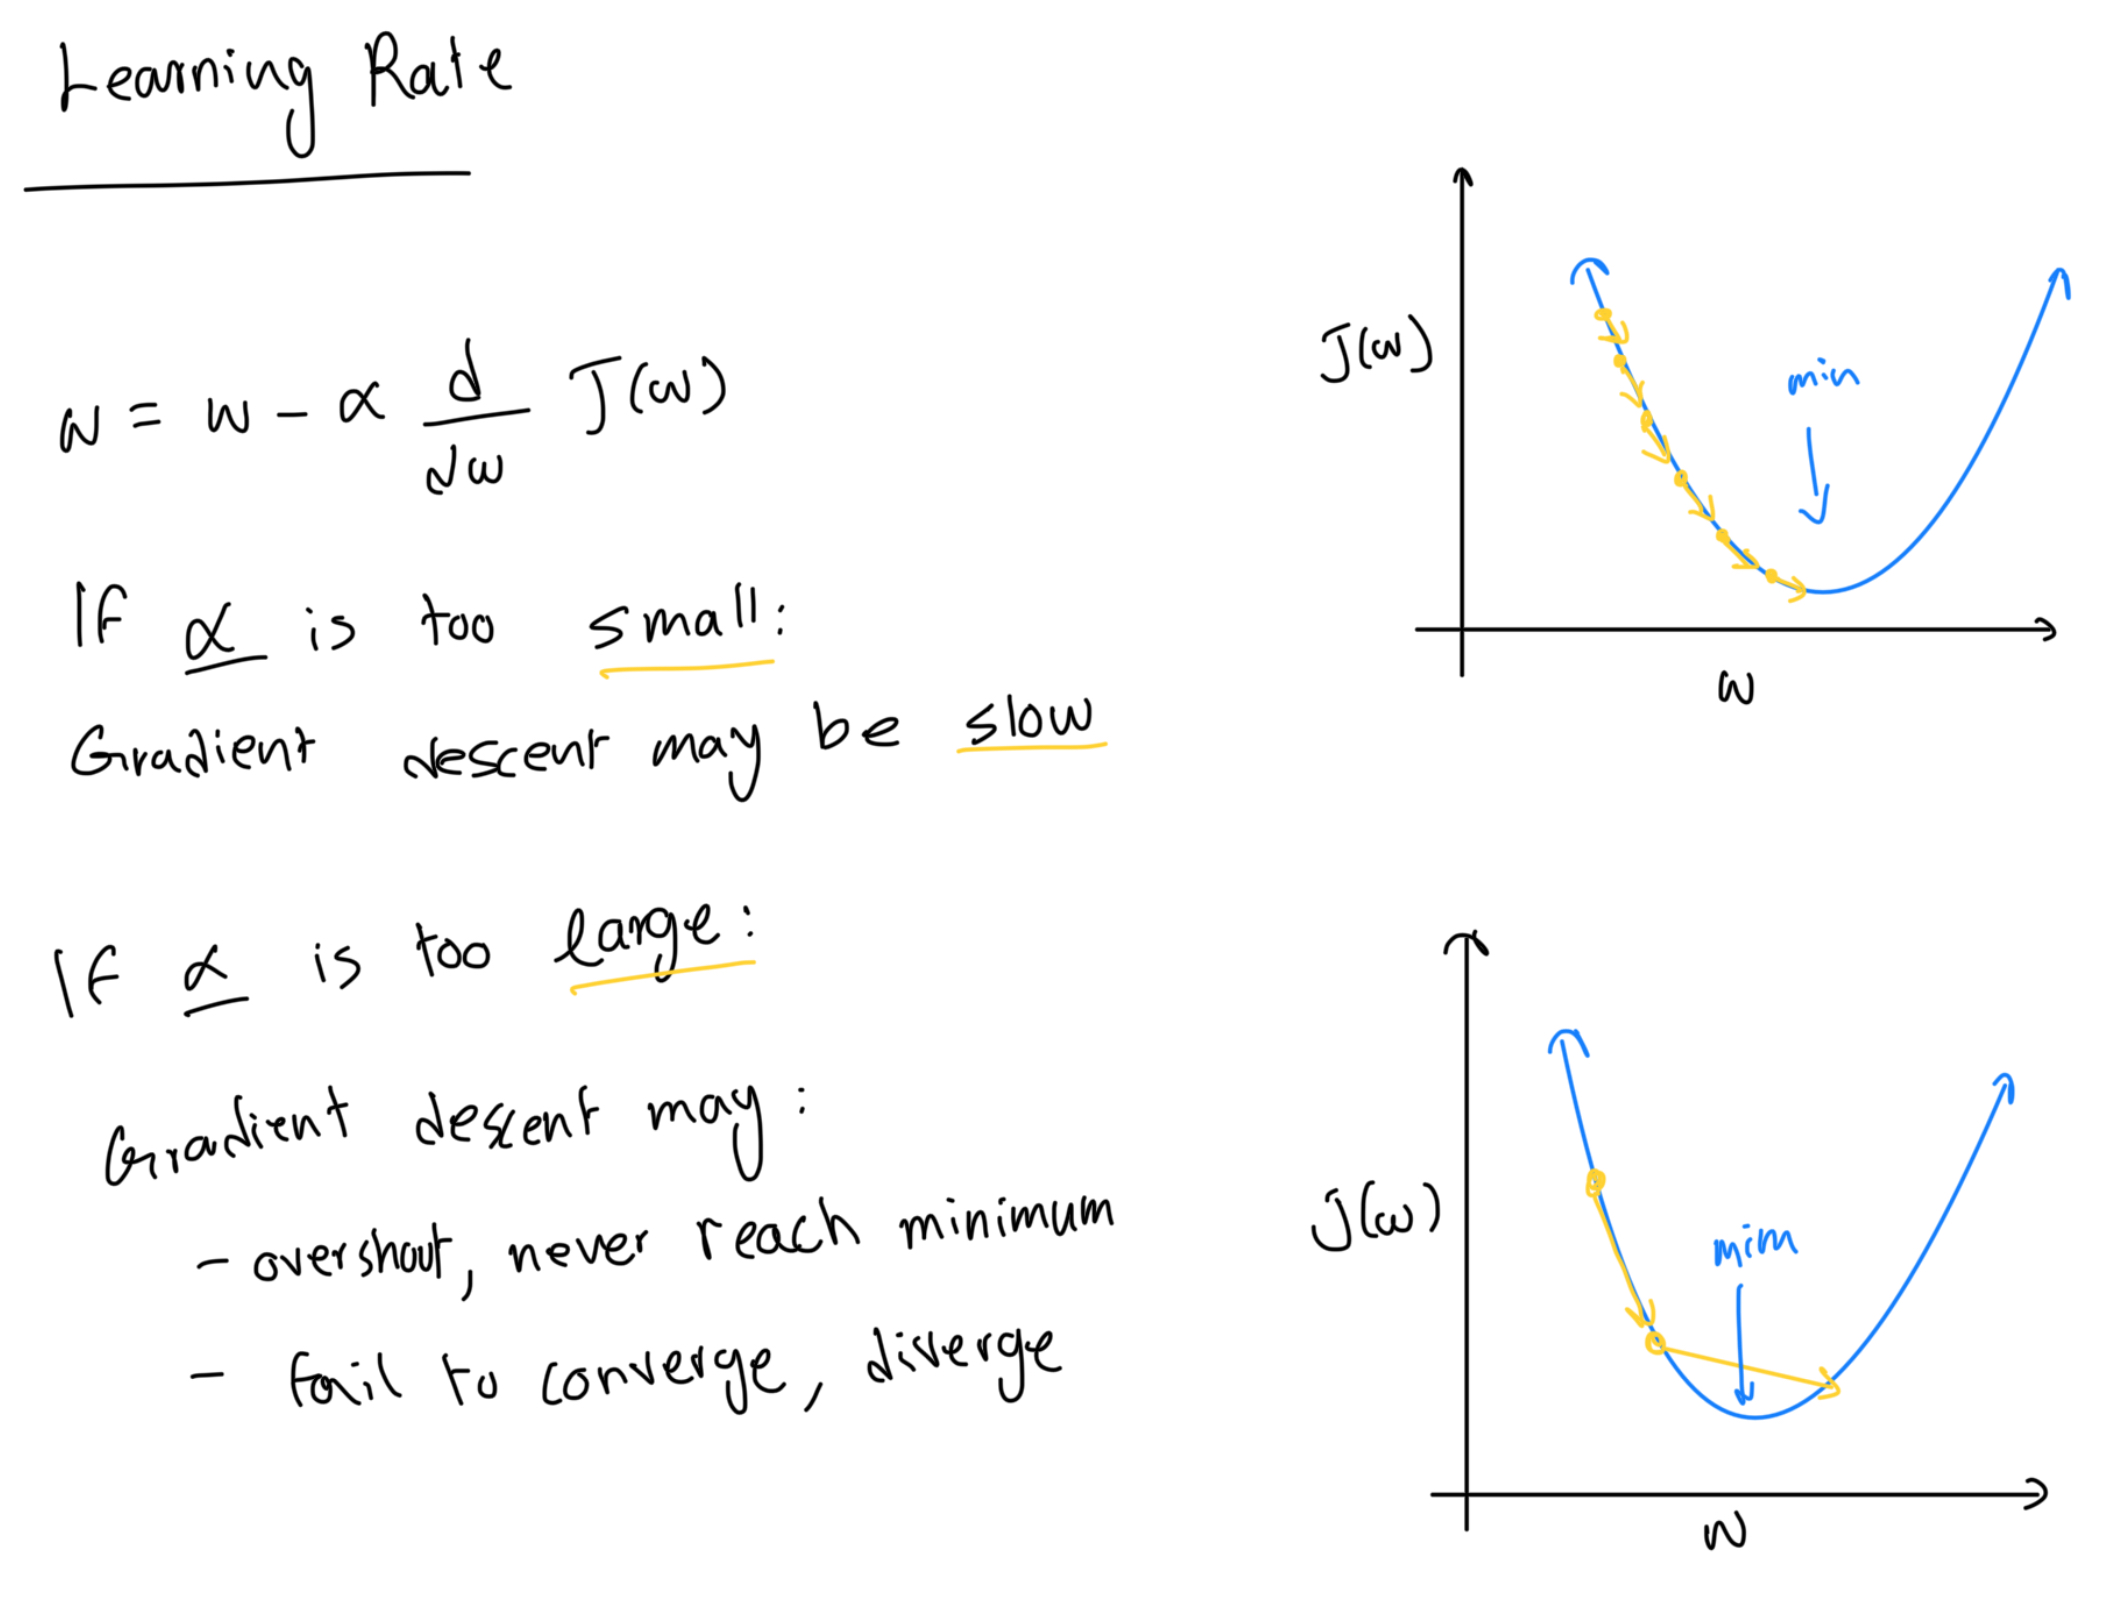 Learning Rate
w = w - α d/dw J(w)
If α is too small:
Gradient descent may be slow
If α is too large:
Gradient descent may:
- overshoot, never reach minimum
- fail to converge, diverge
J(w)
min
w
J(w)
min
w